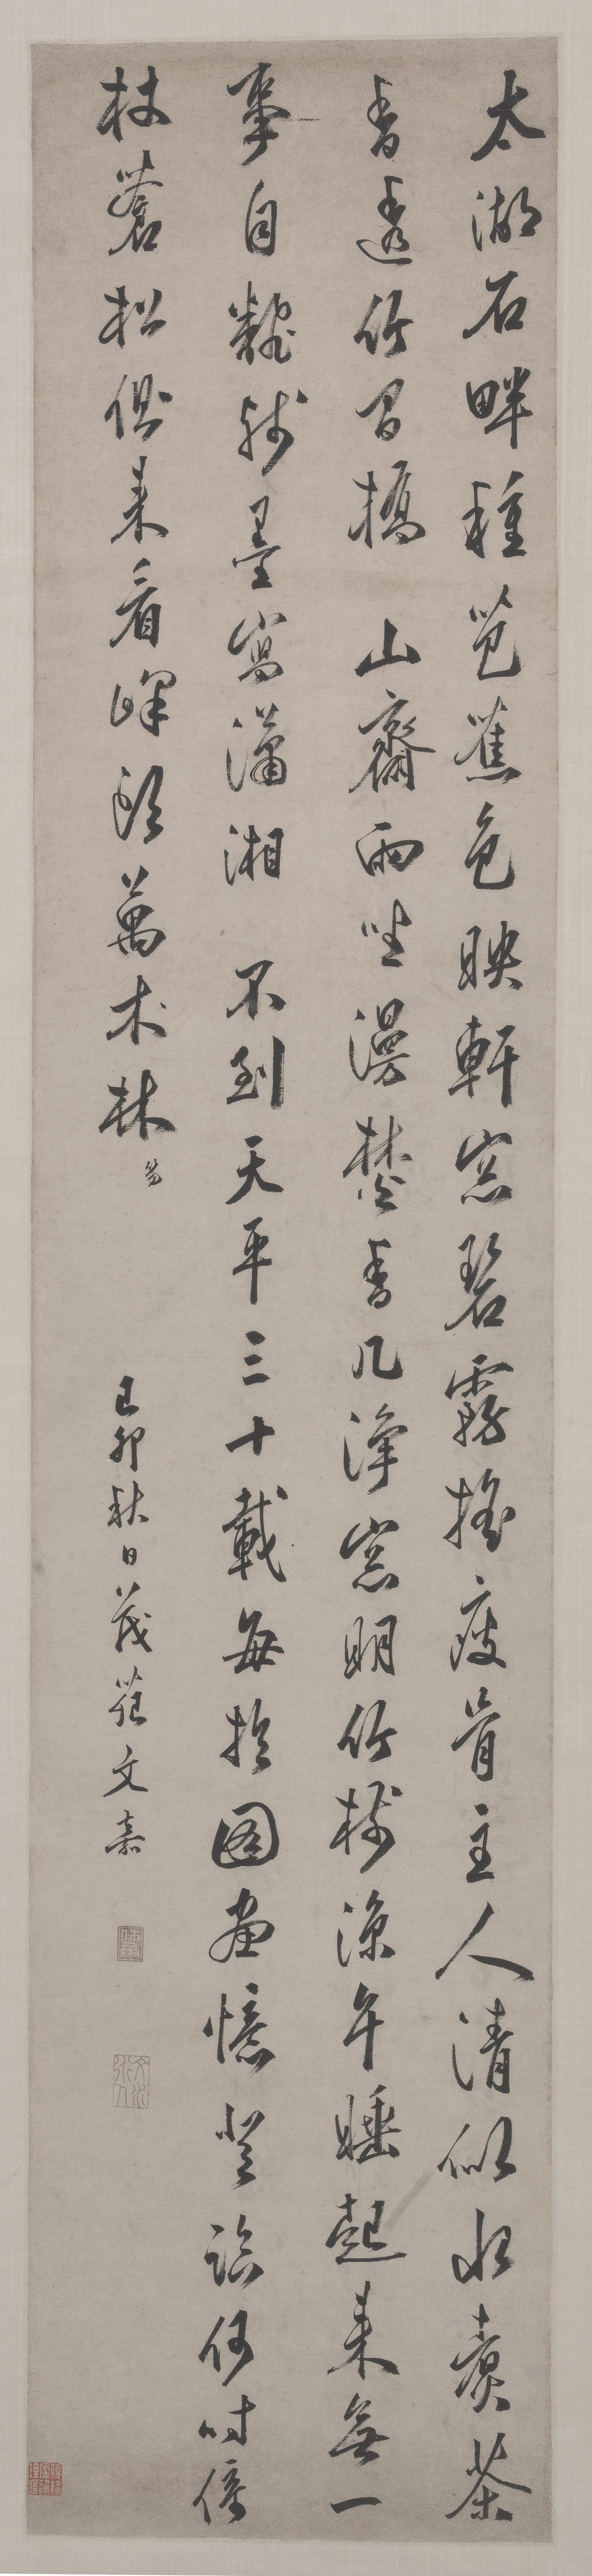 太湖石畔種芭蕉色映軒窓碧霧搖瘦骨主人清似水煮茶
香透竹間橋 山齋雨坐漫焚香几淨窓明竹樹涼午睡起來無一
事自殘墨寫瀟湘 不到天平三十載每於圖畫憶登臨何時倚
杖蒼松側來看峰頭萬木林 笏
己卯秋日茂苑文嘉